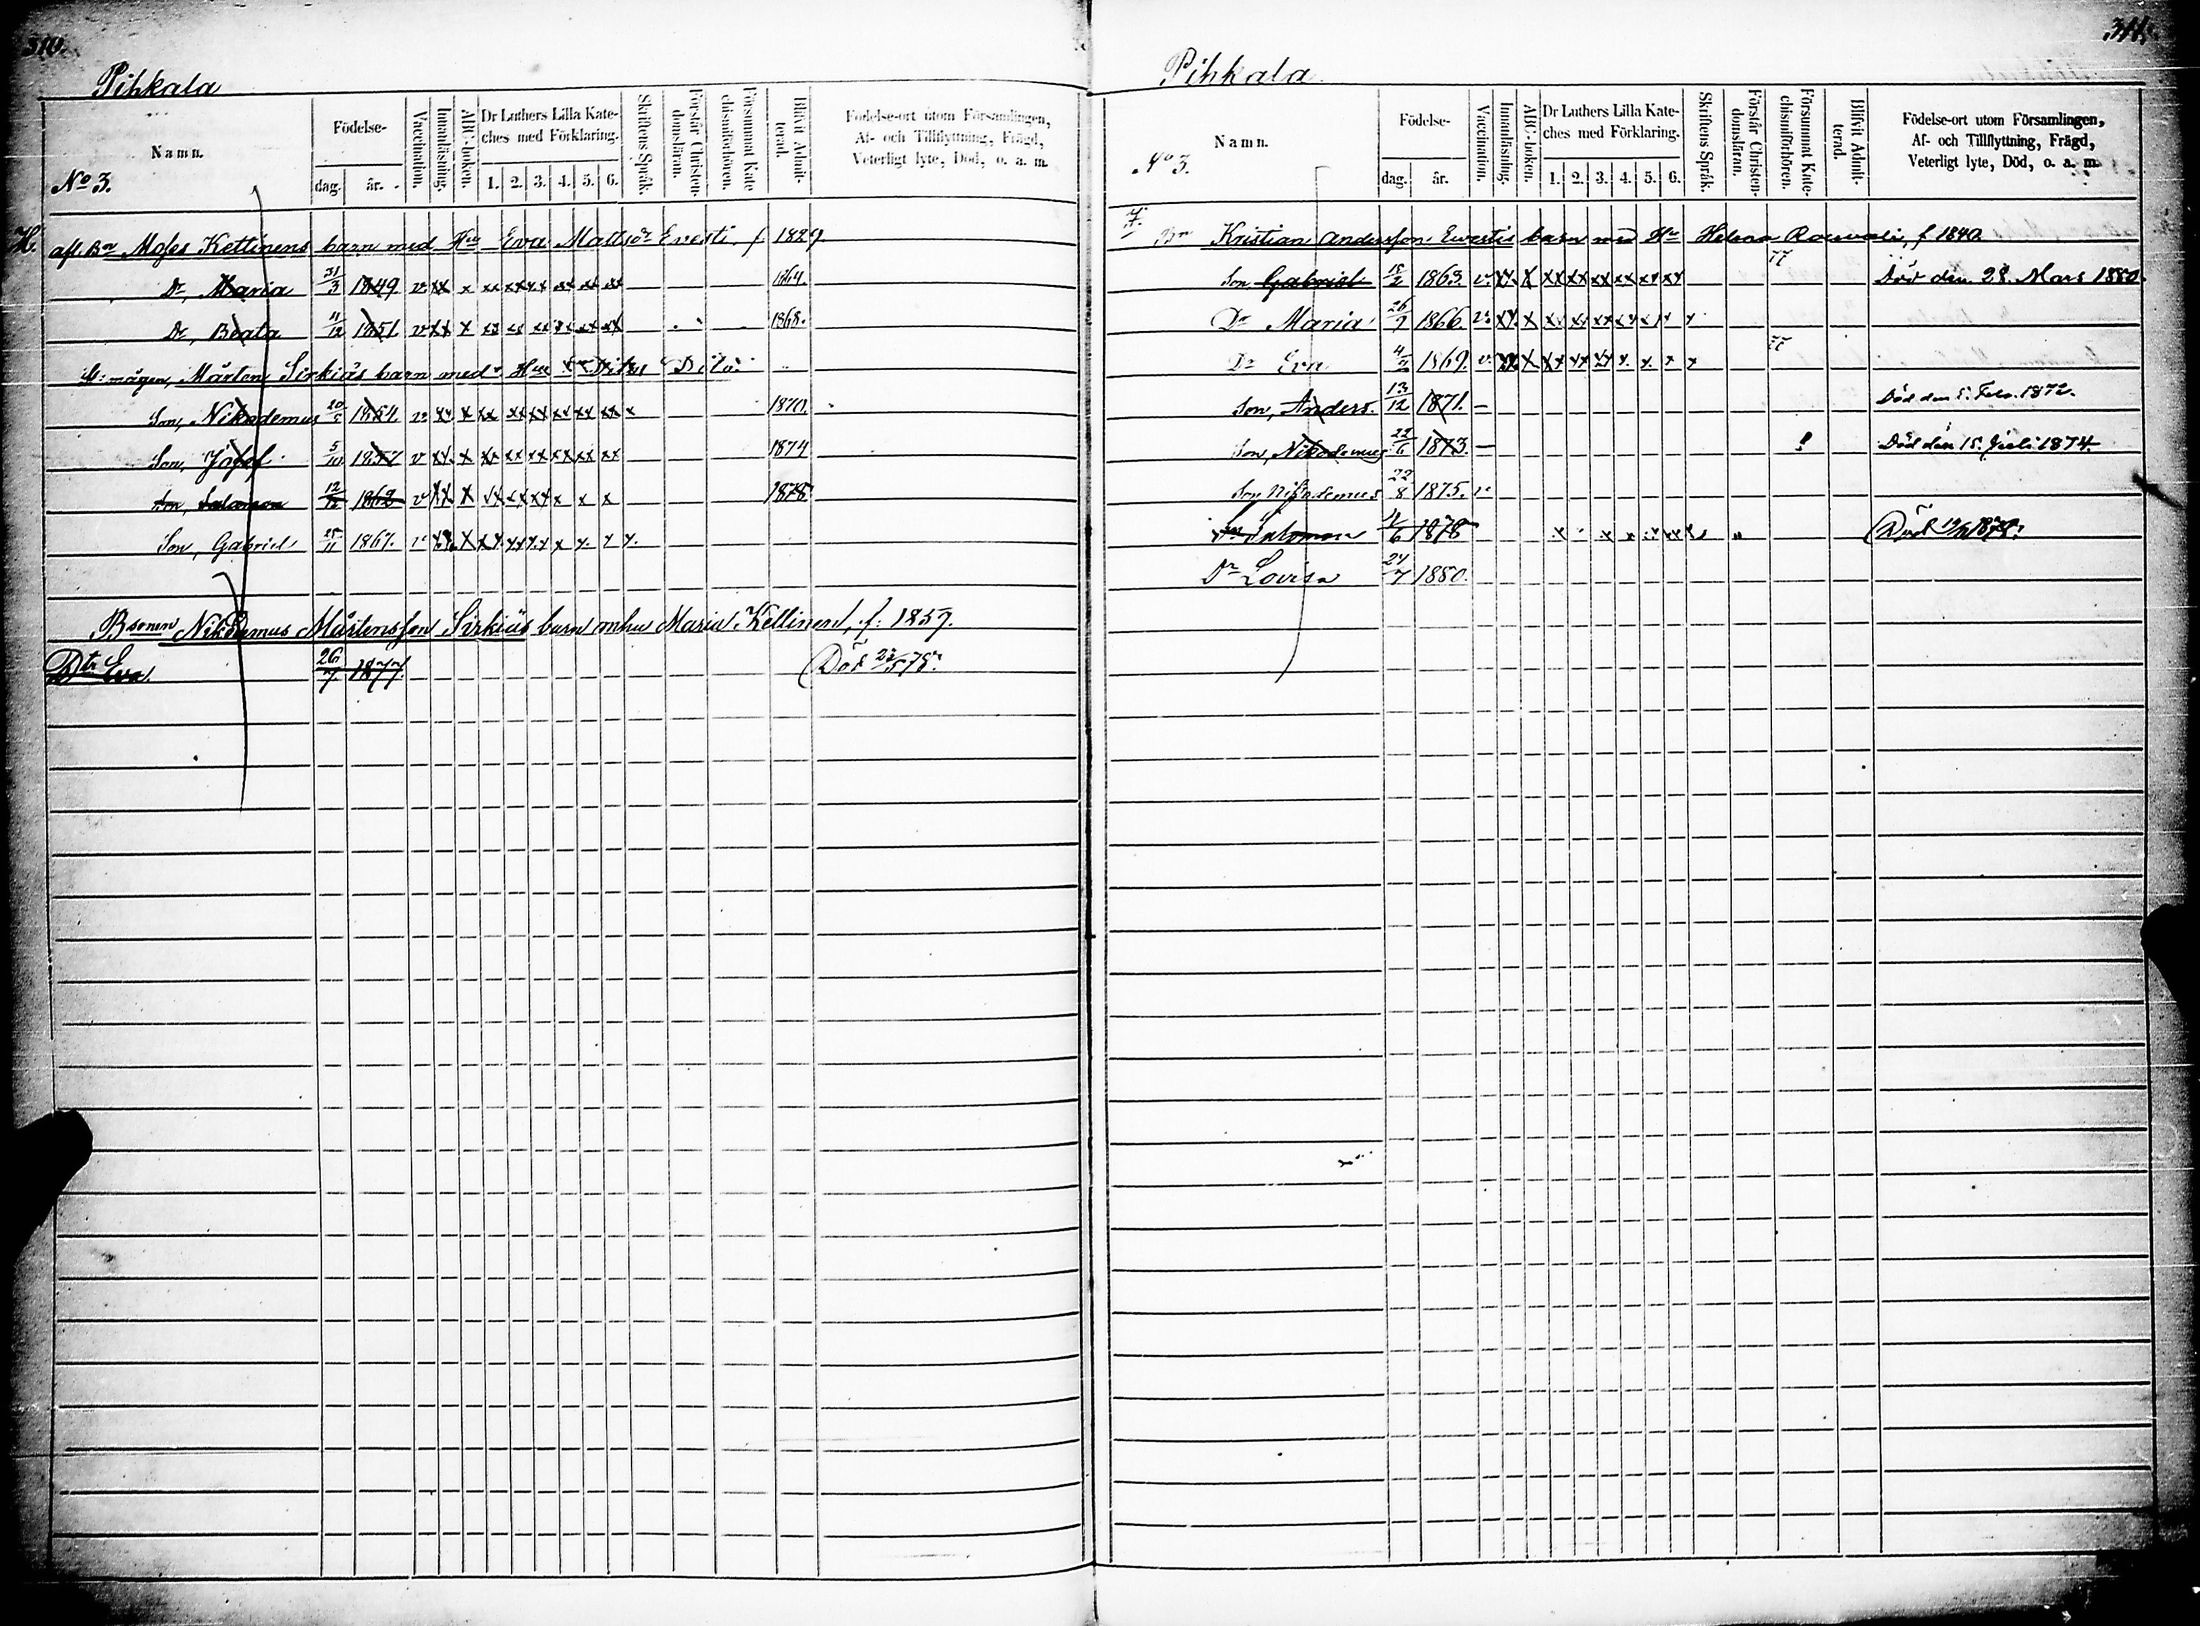 310.
Pihkala
Namn.
No 3.
Födelse-
dag. år.
Vaccination.
Innanläsning.
ABC-boken.
Dr Luthers Lilla Kate-
ches med Förklaring.
1. 2. 3. 4. 5. 6.
Skriftens Språk.
Förstår Christen-
domsläran.
Försummat Kate
chismiförhören.
Blifvit Admit-
terad.
Födelse-ort utom Församlingen,
Af- och Tillflyttning, Frägd,
Veterligt lyte, Död, o. a. m.
afl. Bn Moses Kettinens barn med Hu Eva Mattsdr Evesti, f 1829
Dr, Maria 31/3 1849 v xx x xx xx xx xx xx xx 1864.
Dr, Beata 11/12 1851 v xx x xx xx xx xx xx xx 1868.
mågen, Mårten Sirkiäs barn med Hu Dito
Son, Nikodemus 1854 v xx x xx xx xx xx xx xx x 1870.
Son, Josef 5/10 1857 v xx x xx xx xx xx xx xx 1874
Son, Salomon 1862 v xx x xx xx xx x x x 1878
Son, Gabriel 25/11 1867. v xx x xx xx xx x x x x.
Bsonen Nikodemus Mårtensson Sirkiäs barn mhu Maria Kettinen, f. 1859.
Dtr Eva. 26/7 1877. Död 22/5 78.
311.
Pihkala
Namn.
No 3.
Födelse-
dag. år.
Vaccination.
Innanläsning.
ABC-boken.
Dr Luthers Lilla Kate-
ches med Förklaring.
1. 2. 3. 4. 5. 6.
Skriftens Språk.
Förstår Christen-
domsläran.
Försummat Kate-
chismiförhören.
Blifvit Admit-
terad.
Födelse-ort utom Församlingen,
Af- och Tillflyttning, Frägd,
Veterligt lyte, Död, o. a. m.
Bn Kristian Andersson Ewestis barn med Hu Helena f 1840.
Son, Gabriel 18/2 1863. v. xx x xx xx xx xx xx xx 77 Död den 28. Mars 1880.
Dr Maria 26/9 1866. v. xx. x xx xx xx xx x x x
Dr Eva 1869. v. xx x xx xx xx x. x. x x 77
Son, Anders. 13/12 1871. — Död den 5. Febr. 1872.
Son, Nikodemus 22/6 1873. — Död den 15. Juli 1874.
Son Nikodemus 22/8 1875. v
Son Salomon 11/6 1878 Död 1878.
Dr Lovisa 27/7 1880.